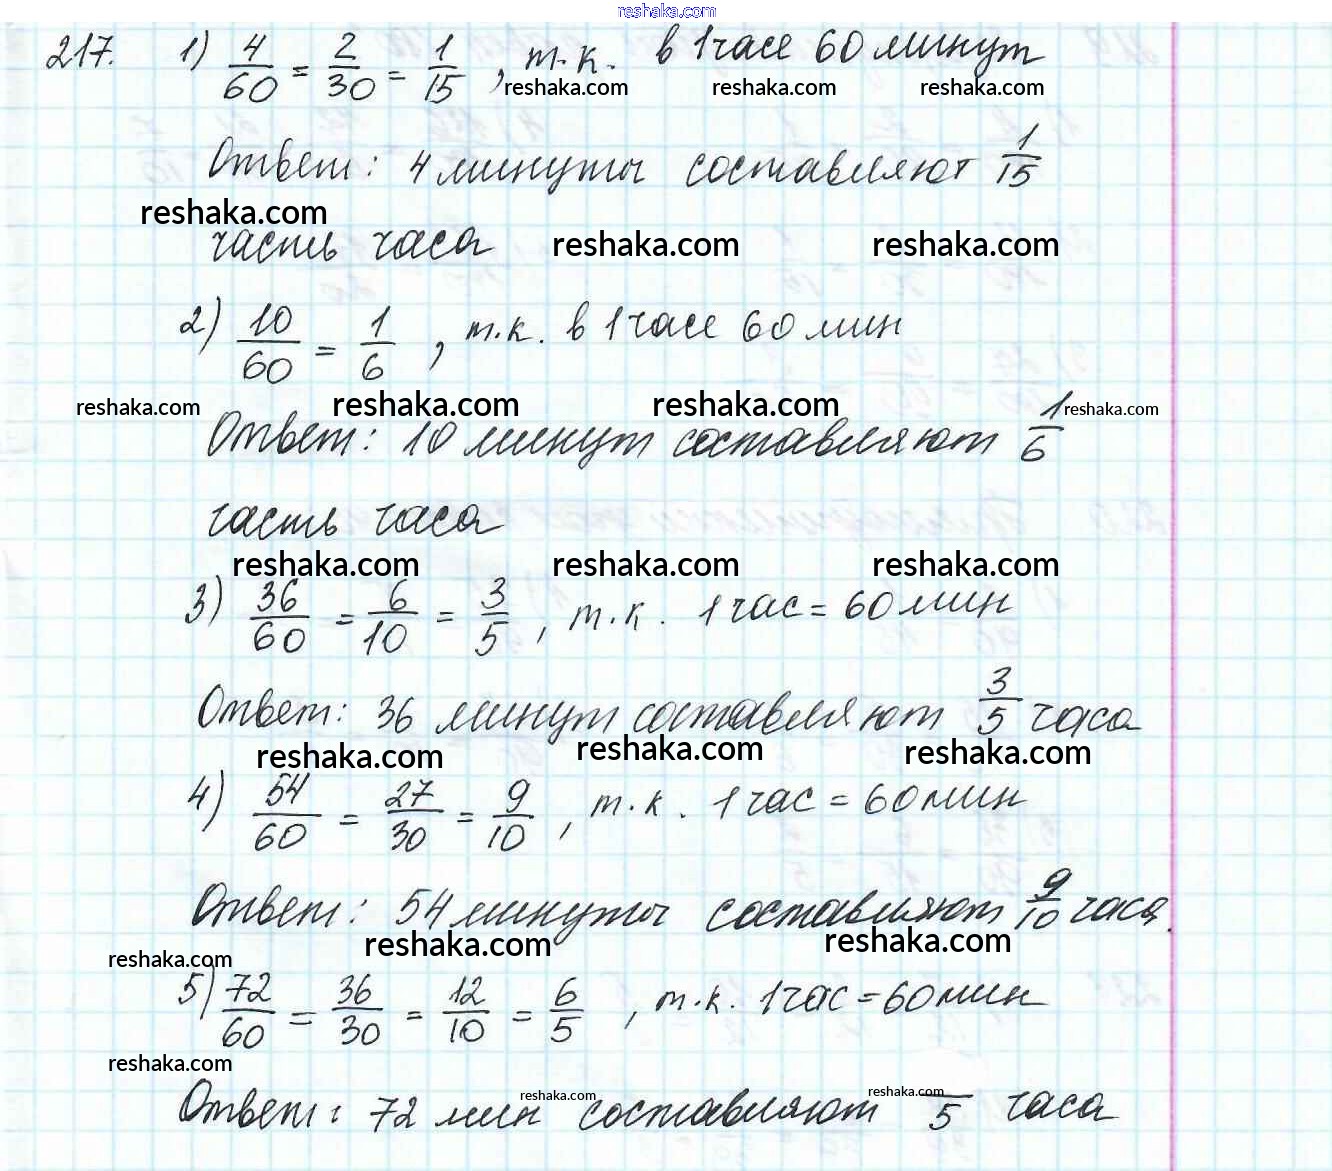 reshaka.com
217. 1) 4/60 = 2/30 = 1/15, т.к. в 1 часе 60 минут
reshaka.com reshaka.com reshaka.com
Ответ: 4 минуты составляют 1/15
reshaka.com
часть часа reshaka.com reshaka.com
2) 10/60 = 1/6, т.к. в 1 часе 60 мин
reshaka.com reshaka.com reshaka.com reshaka.com
Ответ: 10 минут составляют 1/6
часть часа
reshaka.com reshaka.com reshaka.com
3) 36/60 = 6/10 = 3/5, т.к. 1 час = 60 мин
Ответ: 36 минут составляют 3/5 часа
reshaka.com reshaka.com reshaka.com
4) 54/60 = 27/30 = 9/10, т.к. 1 час = 60 мин
Ответ: 54 минуты составляют 9/10 часа.
reshaka.com reshaka.com reshaka.com
5) 72/60 = 36/30 = 12/10 = 6/5, т.к. 1 час = 60 мин
reshaka.com
reshaka.com reshaka.com
Ответ: 72 мин составляют /5 часа